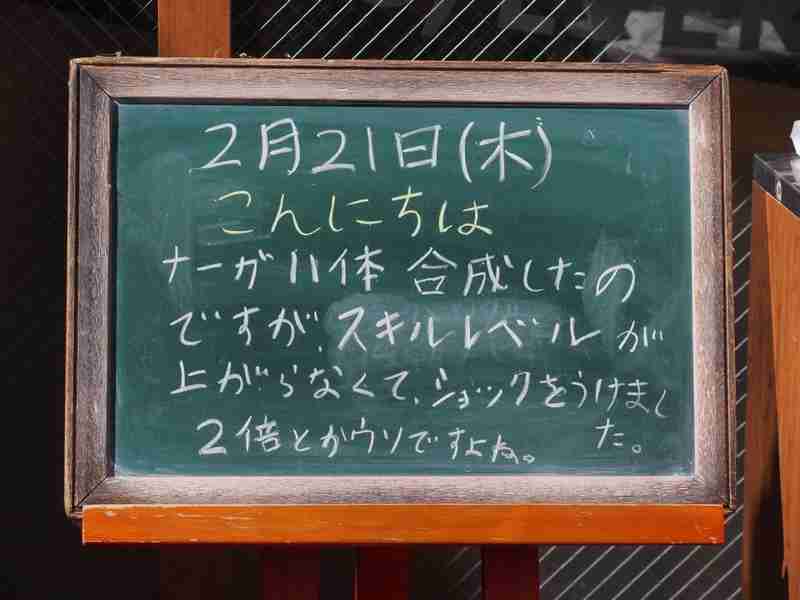 2月21日(木)
こんにちは
ナーガ11体 合成したの
ですが、スキルレベルが
上がらなくて、ショックをうけまし
た。
2倍とかウソですよね。